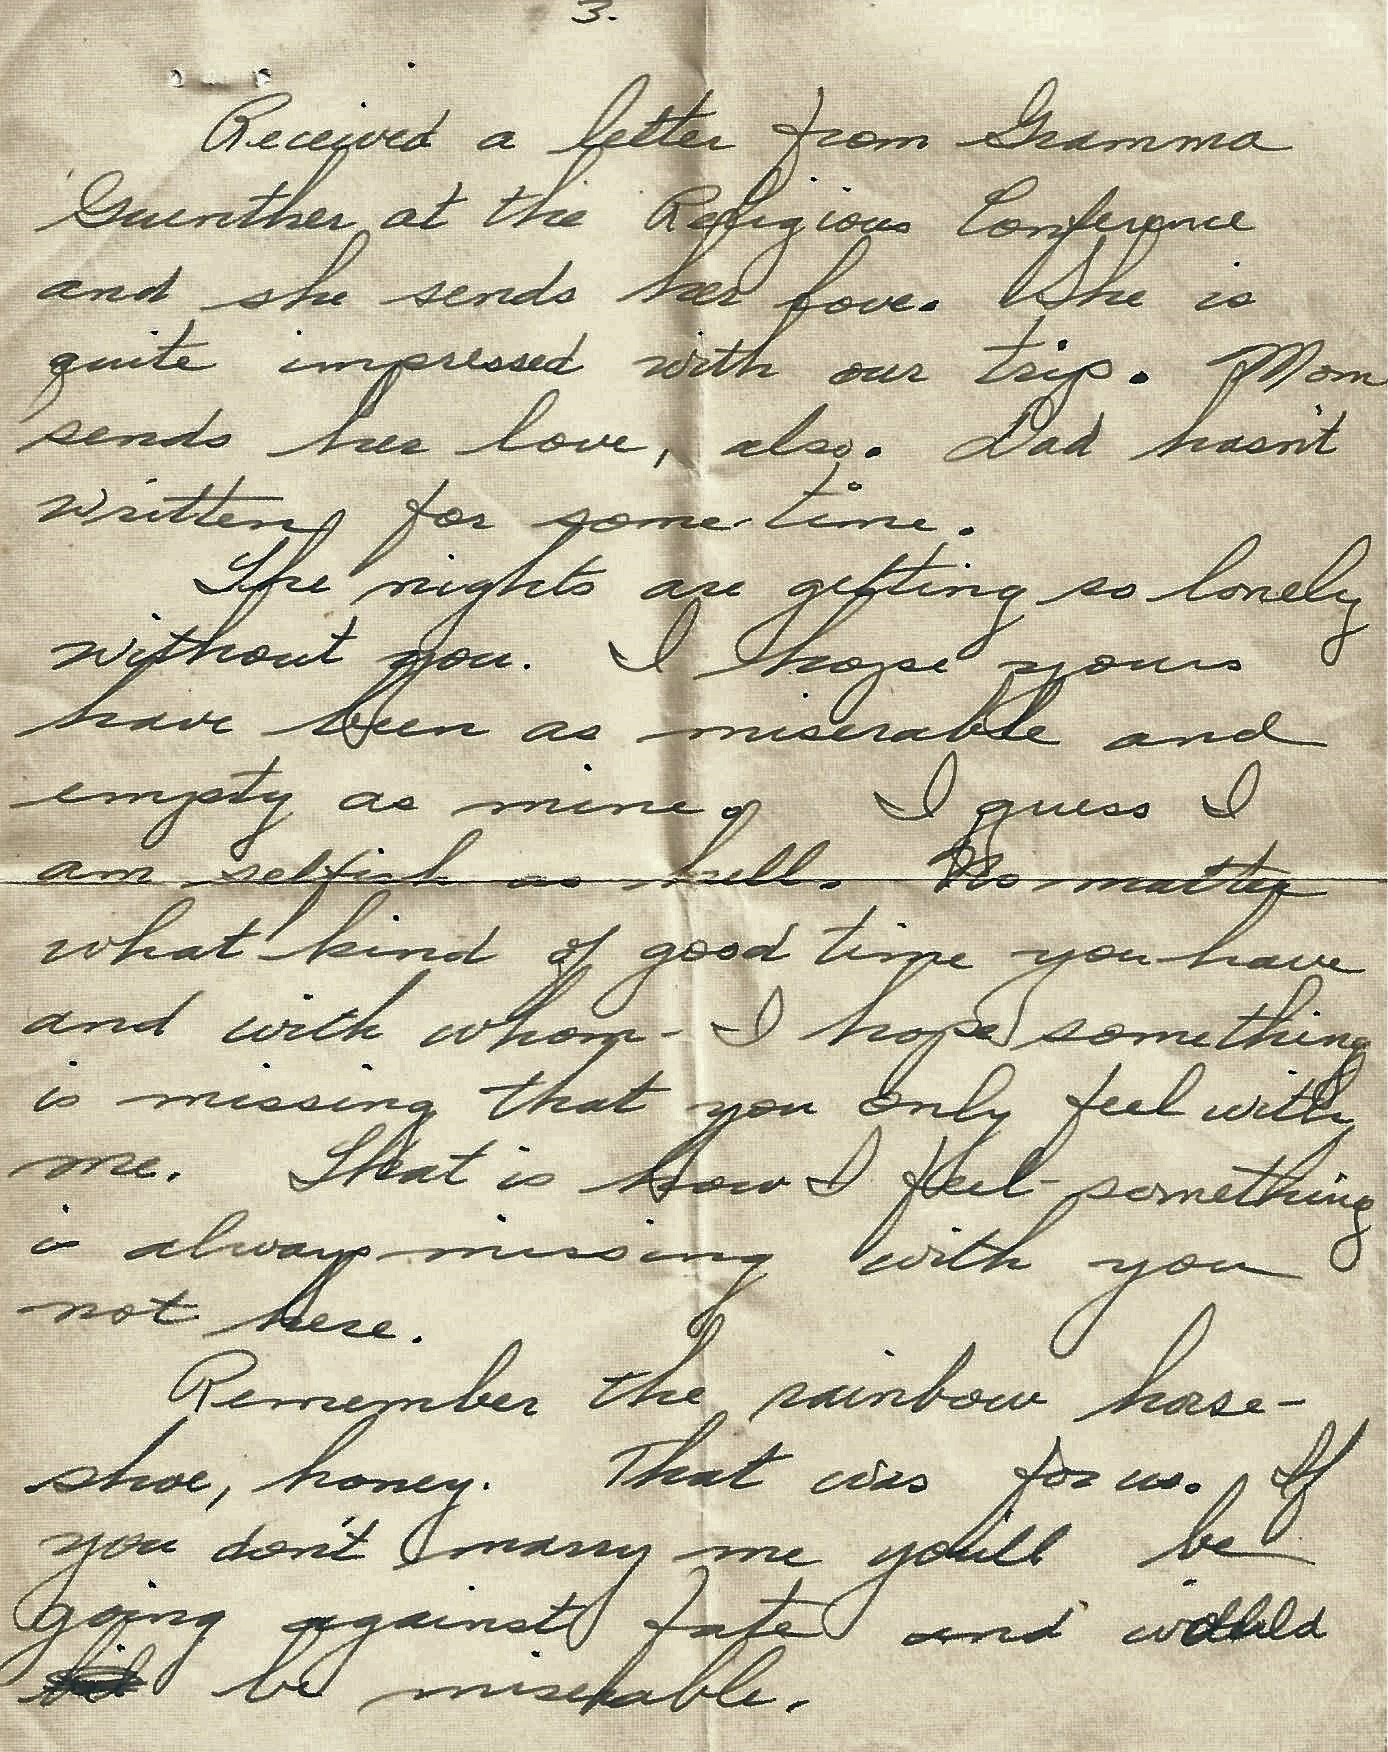 3.
Received a letter from Gramma
Guenther at the Religious Conference
and she sends her love. She is
quite impressed with our trip. Mom
sends her love, also. Dad hasn't
written for some time.
The nights are getting so lonely
without you. I hope yours
have been as miserable and
empty as mine. I guess I
am selfish as hell. No matter
what kind of good time you have
and with whom - I hope something
is missing that you only feel with
me. That is how I feel - something
is always missing with you
not here.
Remember the rainbow horse-
shoe, honey. That was for us. If
you don't marry me you'll be
going against fate and would
be miserable.